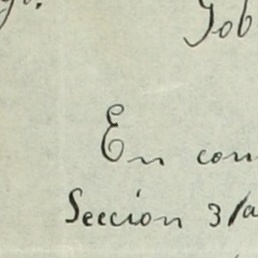 Gob
En con
Seccion 3/a